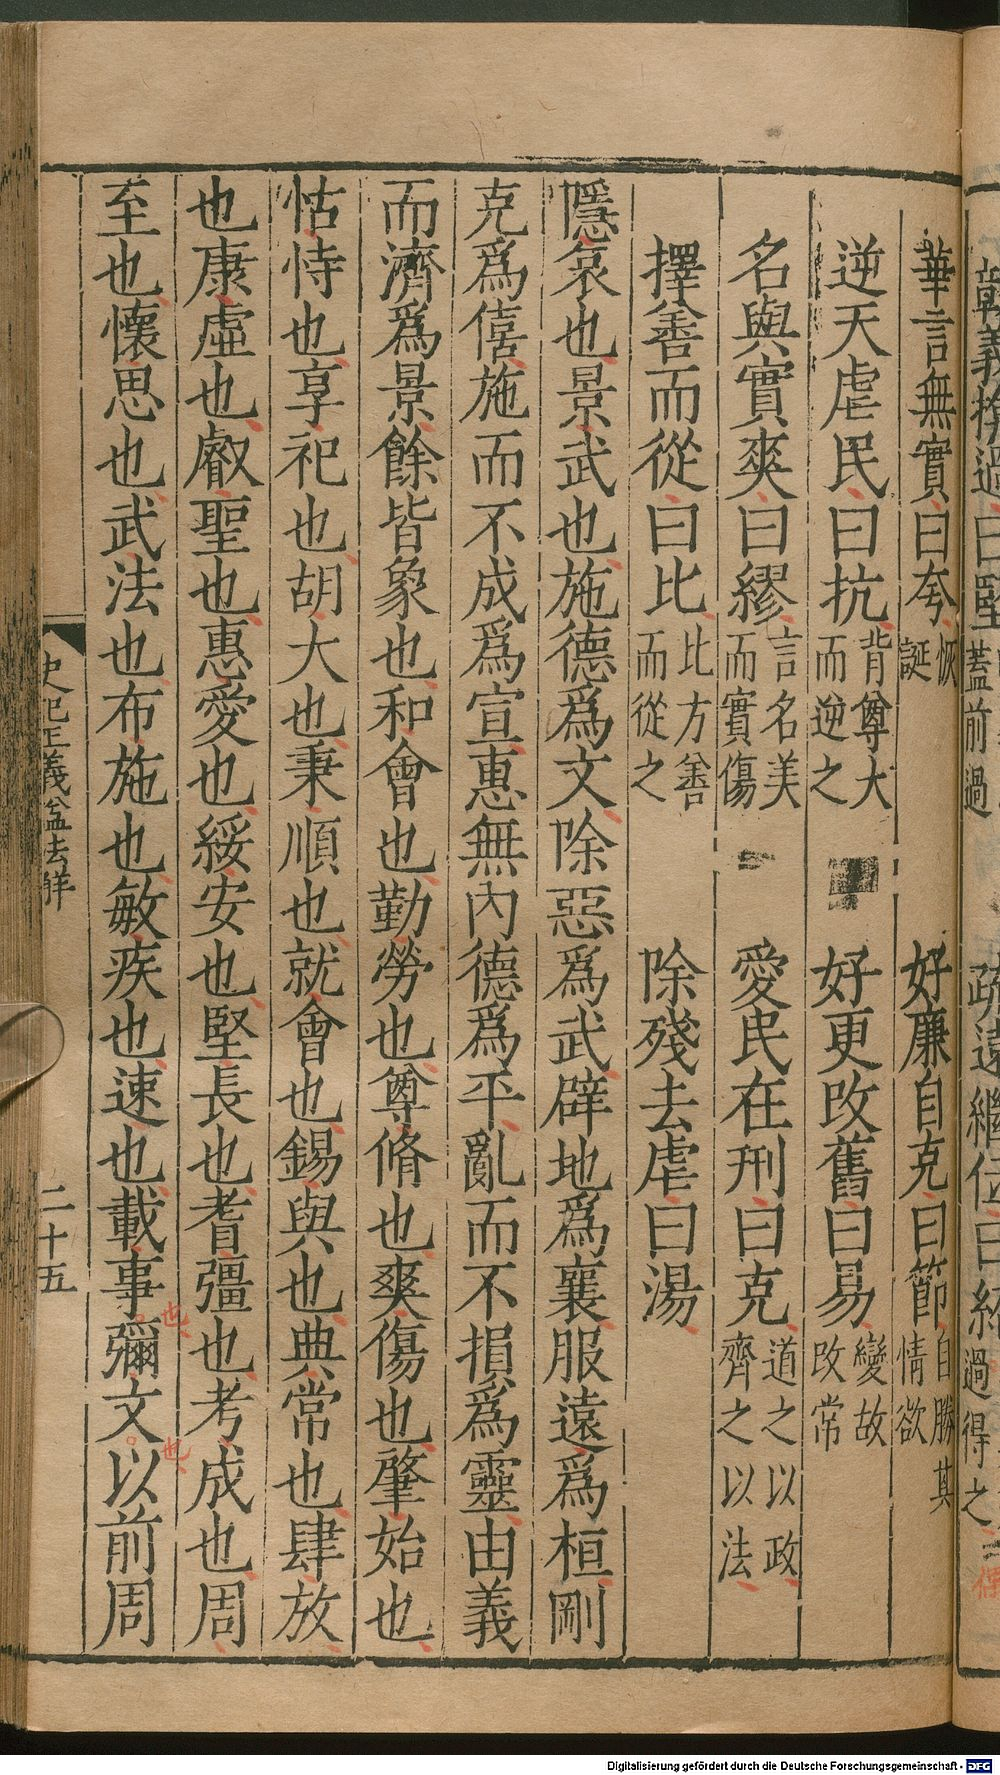 華言無實曰夸恢誕　好廉自克曰節自勝其情欲
逆天虐民曰抗背尊大而逆之　好更改舊曰易變故改常
名與實爽曰繆言名美而實傷　愛民在刑曰克道之以政齊之以法
擇善而從曰比比方善而從之　除殘去虐曰湯
隱哀也景武也施德爲文除惡爲武辟地爲襄服遠爲桓剛
克爲僖施而不成爲宣惠無內德爲平亂而不損爲靈由義
而濟爲景餘皆象也和會也勤勞也尊脩也爽傷也肇始也
怙恃也享祀也胡大也秉順也就會也錫與也典常也肆放
也康虛也叡聖也惠愛也綏安也堅長也耆彊也考成也周
至也懷思也武法也布施也敏疾也速也載事也彌文也以前周
史記正義謚法解
二十五
曰堅
蓋前過
疏遠繼位曰紀
過得之
Digitalisierung gefördert durch die Deutsche Forschungsgemeinschaft - DFG